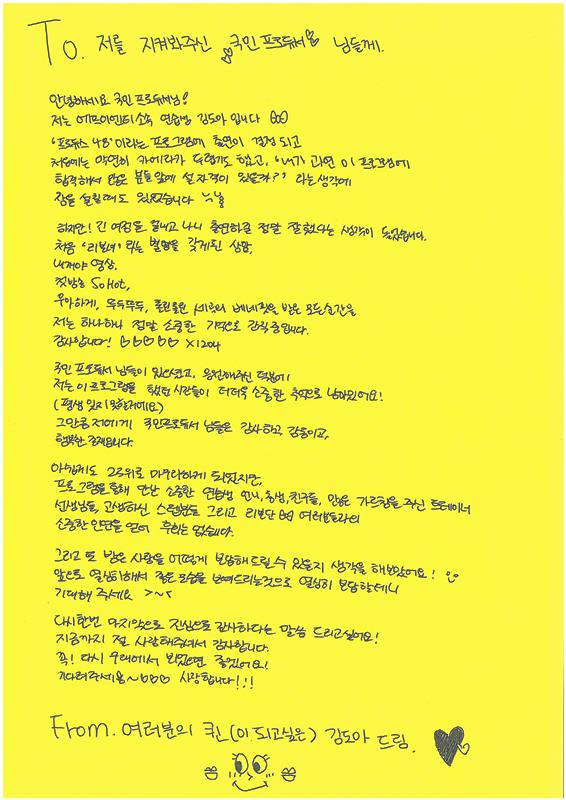 To. 저를 지켜봐주신 국민 프로듀서 님들께.
안녕하세요 국민 프로듀서님!
저는 에프이엔티소속 연습생 김도아 입니다
'프로듀스 48' 이라는 프로그램에 출연이 결정 되고
처음에는 막연히 카메라가 두렵기도 했고, '내가 과연 이 프로그램에
합격해서 많은 분들앞에 설 자격이 있을까?' 라는생각에
잠을 설칠때도 있었습니다
하지만! 긴 여정을 끝내고 나니 출연하길 정말 잘했다는 생각이 들었습니다.
처음 '리본녀' 라는 별명을 갖게된 상암,
내꺼야 영상,
첫방송 So Hot,
우아하게, 뚜두뚜두, 롤린롤린 베네핏을 받은 모든순간을
저는 하나하나 정말 소중한 기억으로 간직중입니다.
감사합니다! ♡♡♡♡♡ x1204
국민 프로듀서 님들이 있으셨고, 응원해주신 덕분에
저는 이 프로그램을 했었던 시간들이 더더욱 소중한 추억으로 남아있어요!
(평생 잊지못할거에요)
그만큼 저에게 국민프로듀서 님들은 감사하고, 감동이고,
행복한 존재입니다.
아쉽게도 23위로 마무리하게 되었지만,
프로그램을통해 만난 소중한 연습생 언니,동생,친구들, 많은 가르침을 주신 트레이너
선생님들, 고생하신 스탭분들 그리고 리본단 여러분들과의
소중한 인연을 얻어 후회는 없습니다.
그리고 또 받은 사랑을 어떻게 보답해드릴 수 있을지 생각을 해보았어요!
앞으로 열심히해서 좋은 모습을 보여드리는것으로 열심히 보답할테니
기대해 주세요 >~<
다시한번 마지막으로 진심으로 감사하다는 말씀 드리고싶어요!
지금까지 절 사랑해주셔서 감사합니다.
꼭! 다시 무대에서 뵈었으면 좋겠어요!
기다려주세용~♡♡♡ 사랑합니다!!!
From. 여러분의 퀸(이 되고싶은) 김도아 드림.